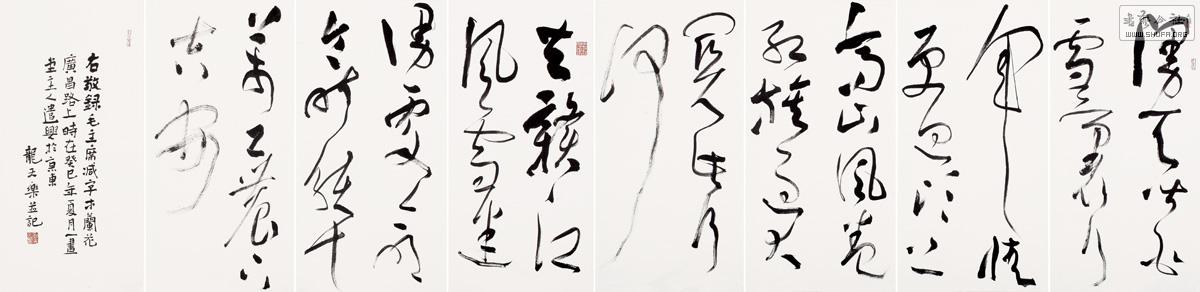 漫天皆白
雪裏行
軍情
更迫头上
高山風卷
红旗過大
関此行
何
去赣江
風雪迷
漫處命
令昨颁十
萬工農下
吉安
右敬録毛主席减字木蘭花
廣昌路上時在癸巳年夏月一畫
堂主人遣興於京東
龍文樂並記
WWW.SHUFA.ORG